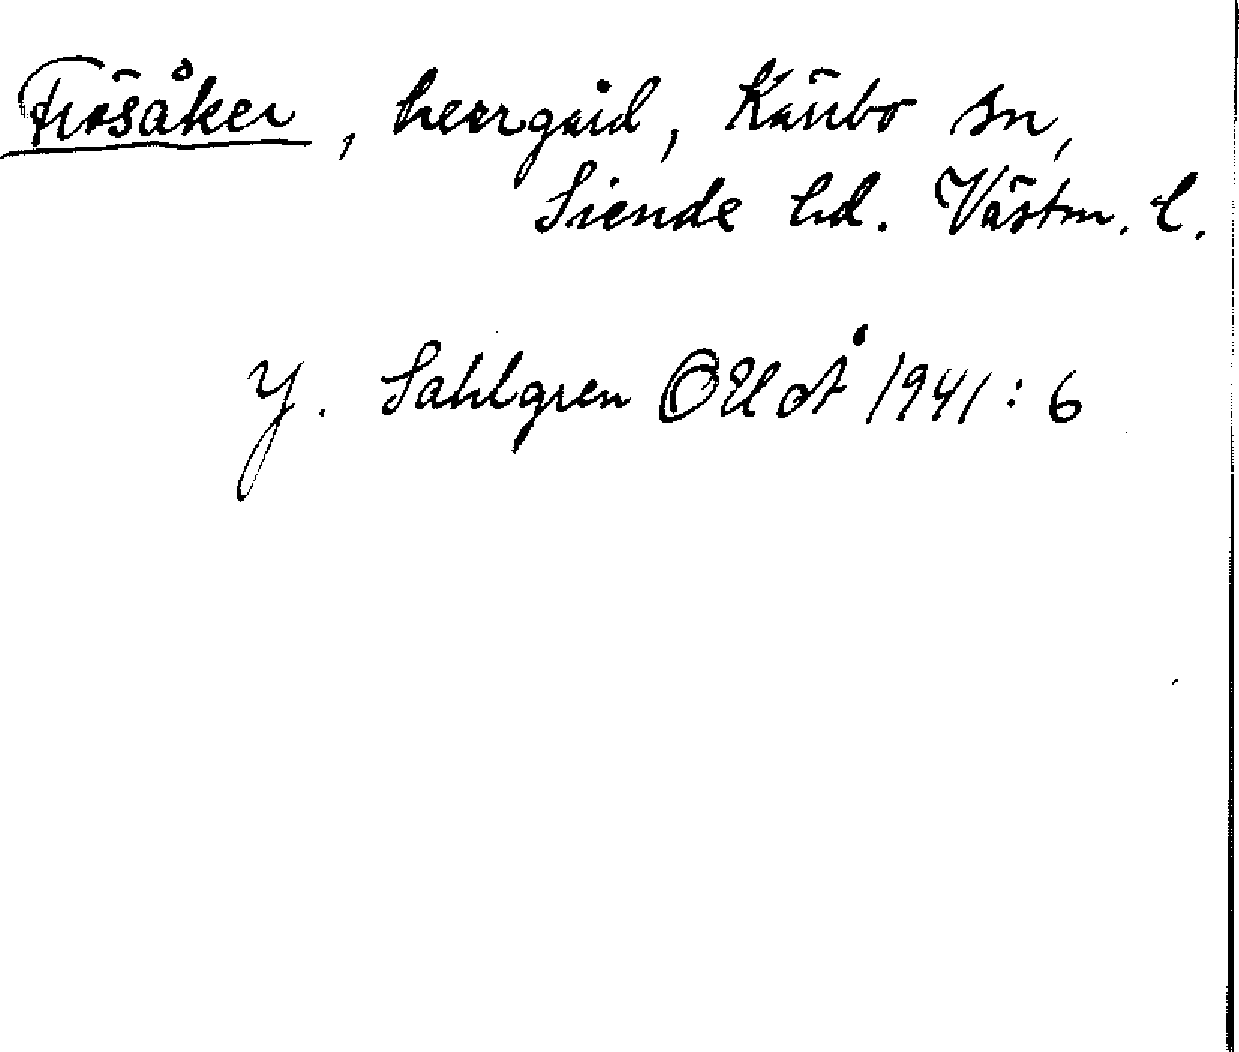 Frösåker, herrgård, Kärrbo sn,
Siende hd. Västm. l.
J. Sahlgren OUOÅ 1941: 6